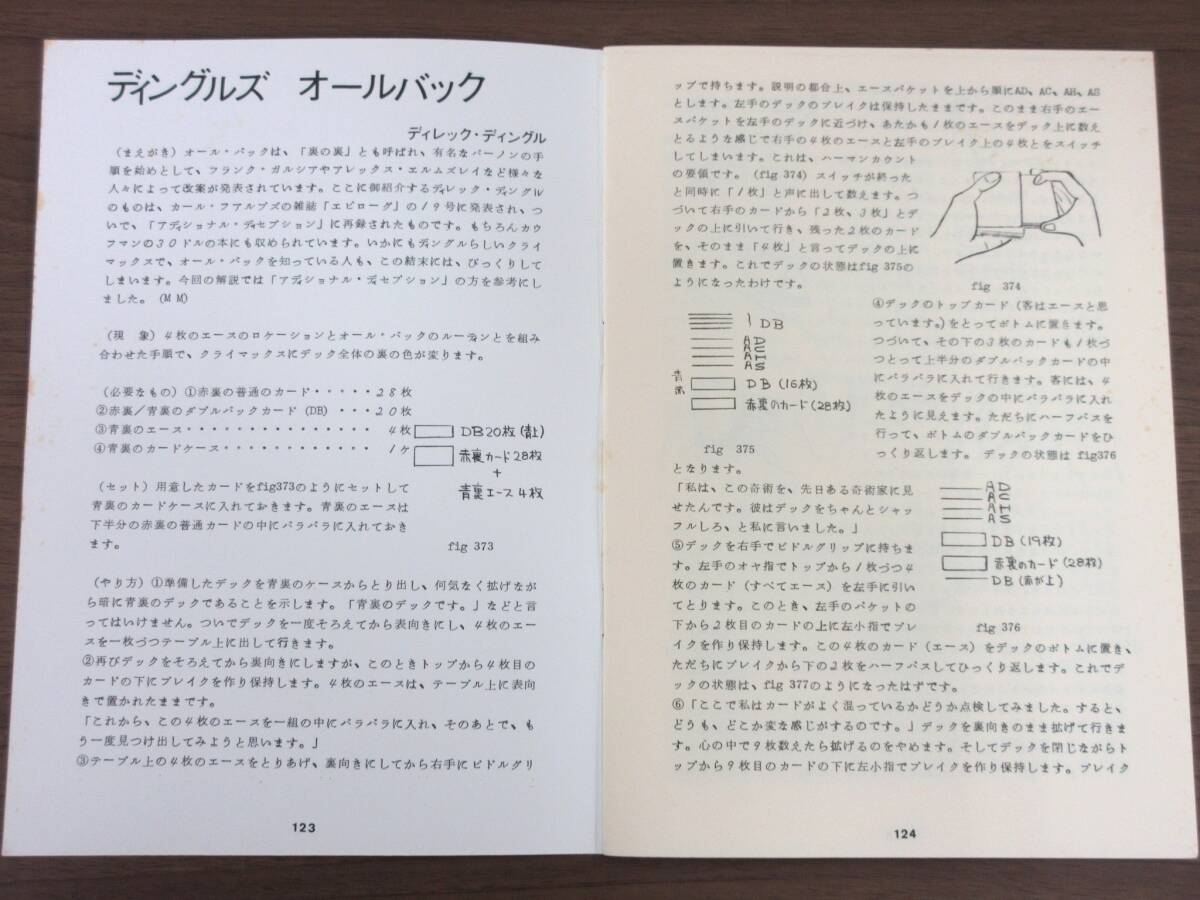 ディングルズ オールバック
ディレック・ディングル
(まえがき) オール・バックは、「裏の裏」とも呼ばれ、有名なバーノンの手
順を始めとして、フランク・ガルシアやアレックス・エルムズレイなど様々な
人々によって改案が発表されています。ここに御紹介するディレック・ディングル
のものは、カール・ファルブズの雑誌「エピローグ」の19号に発表され、つ
いで、「アディショナル・ディセプション」に再録されたものです。もちろんカウ
フマンの30ドルの本にも収められています。いかにもディングルらしいクライ
マックスで、オール・バックを知っている人も、この結末には、びっくりして
しまいます。今回の解説では「アディショナル・ディセプション」の方を参考にし
ました。(MM)
(現 象) 4枚のエースのロケーションとオール・バックのルーティンとを組み
合わせた手順で、クライマックスにデック全体の裏の色が変ります。
(必要なもの) ①赤裏の普通のカード・・・・・28枚
②赤裏/青裏のダブルバックカード (DB) ・・・20枚
③青裏のエース・・・・・・・・・・・・・・・4枚
④青裏のカードケース・・・・・・・・・・・・1ケ
DB20枚(青上)
赤裏カード28枚
+
青裏エース4枚
fig 373
(セット) 用意したカードをfig373のようにセットして
青裏のカードケースに入れておきます。青裏のエースは
下半分の赤裏の普通カードの中にバラバラに入れておき
ます。
(やり方) ①準備したデックを青裏のケースからとり出し、何気なく拡げなが
ら暗に青裏のデックであることを示します。「青裏のデックです。」などと言っ
てはいけません。ついでデックを一度そろえてから表向きにし、4枚のエー
スを一枚づつテーブル上に出して行きます。
②再びデックをそろえてから裏向きにしますが、このときトップから4枚目の
カードの下にブレイクを作り保持します。4枚のエースは、テーブル上に表向
きで置かれたままです。
「これから、この4枚のエースを一組の中にバラバラに入れ、そのあとで、も
う一度見つけ出してみようと思います。」
③テーブル上の4枚のエースをとりあげ、裏向きにしてから右手にビドルグリ
123
ップで持ちます。説明の都合上、エースパケットを上から順にAD、AC、AH、AS
とします。左手のデックのブレイクは保持したままです。このまま右手のエー
スパケットを左手のデックに近づけ、あたかも1枚のエースをデック上に数え
とるような感じで右手の4枚のエースと左手のブレイク上の4枚とをスイッチ
してしまいます。これは、ハーマンカウント
の要領です。(fig 374) スイッチが終った
と同時に「1枚」と声に出して数えます。つ
づいて右手のカードから「2枚、3枚」とデ
ックの上に引いて行き、残った2枚のカード
を、そのまま「4枚」と言ってデックの上に
置きます。これでデックの状態はfig 375の
ようになったわけです。
fig 374
DB
AD
AC
AH
AS
青裏
DB (16枚)
赤裏のカード(28枚)
fig 375
④デックのトップカード (客はエースと思
っています。)をとってボトムに置きます。
つづいて、その下の3枚のカードも1枚づ
つとって上半分のダブルバックカードの中
にバラバラに入れて行きます。客には、4
枚のエースをデックの中にバラバラに入れ
たように見えます。ただちにハーフパスを
行って、ボトムのダブルバックカードをひ
っくり返します。 デックの状態は fig376
となります。
「私は、この奇術を、先日ある奇術家に見
せたんです。彼はデックをちゃんとシャッ
フルしろ、と私に言いました。」
⑤デックを右手でビドルグリップに持ちま
す。左手のオヤ指でトップから1枚づつ4
枚のカード (すべてエース) を左手に引い
てとります。このとき、左手のパケットの
下から2枚目のカードの上に左小指でブレ
AD
AC
AH
AS
DB (19枚)
赤裏のカード(28枚)
DB (赤が上)
fig 376
イクを作り保持します。この4枚のカード (エース) をデックのボトムに置き、
ただちにブレイクから下の2枚をハーフパスしてひっくり返します。これでデ
ックの状態は、fig 377のようになったはずです。
⑥「ここで私はカードがよく混っているかどうか点検してみました。すると、
どうも、どこか変な感じがするのです。」デックを裏向きのまま拡げて行きま
す。心の中で9枚数えたら拡げるのをやめます。そしてデックを閉じながらト
ップから9枚目のカードの下に左小指でブレイクを作り保持します。ブレイク
124